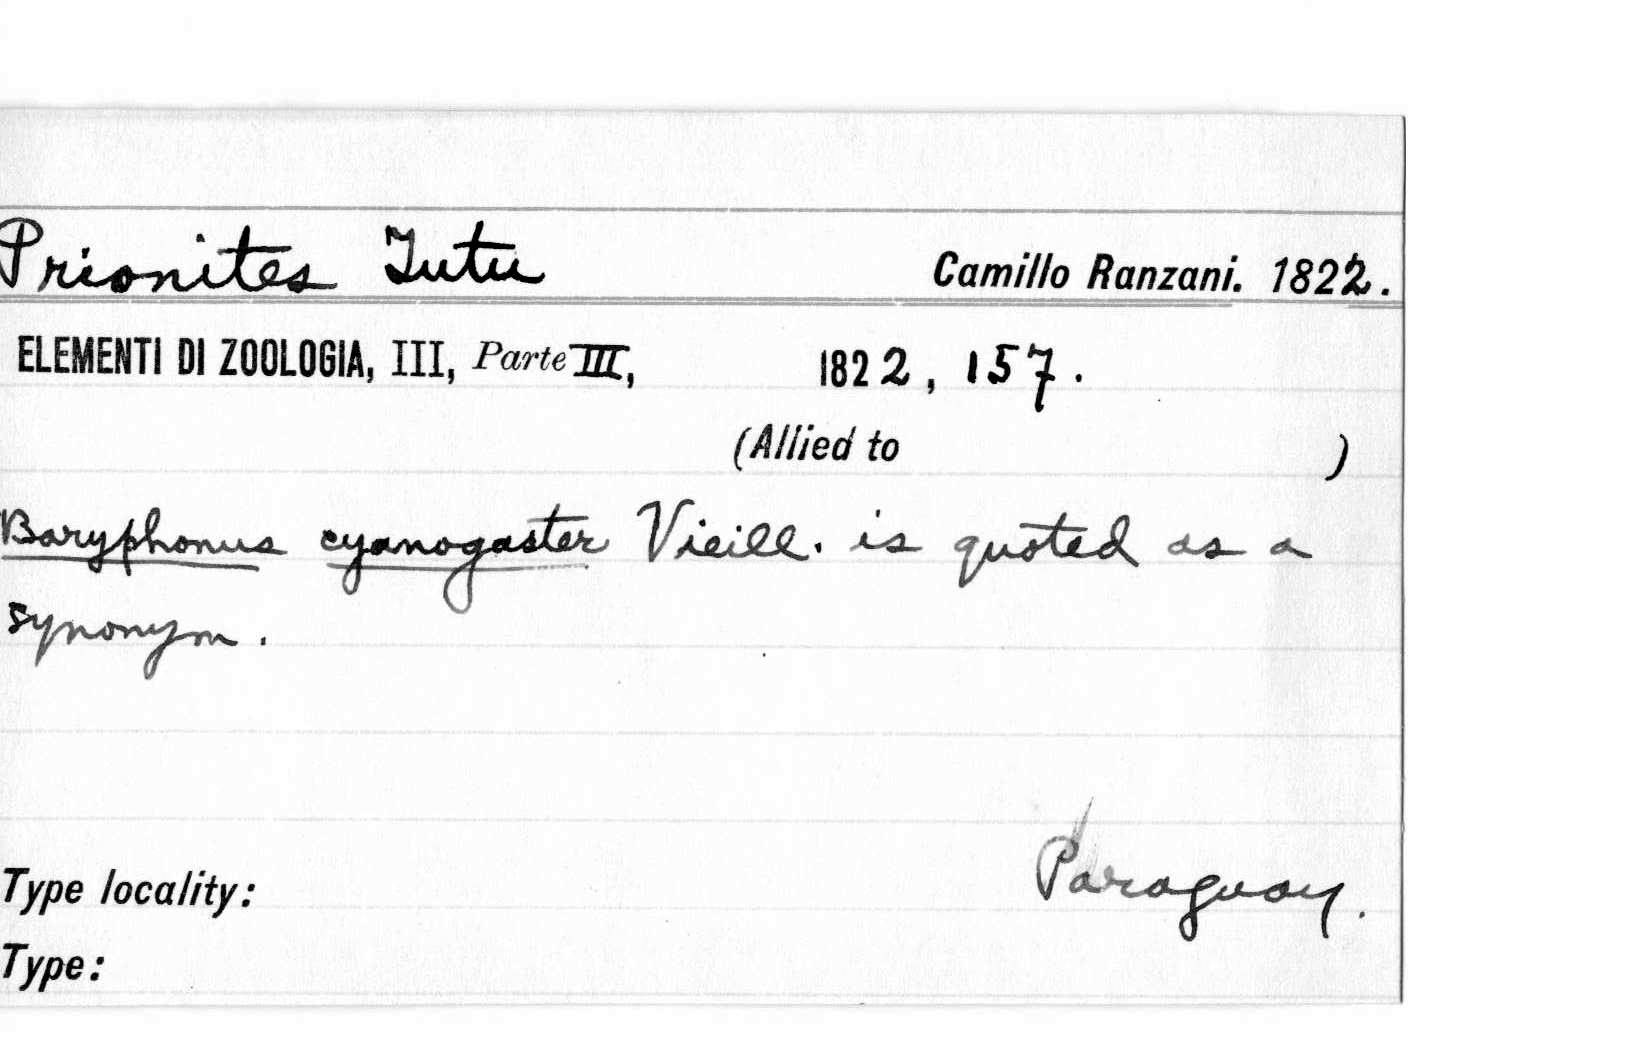 Prionites Tutu Camillo Ranzani. 1822.
ELEMENTI DI ZOOLOGIA, III, Parte III, 1822, 157.
(Allied to )
Baryphonus cyanogaster Vieill. is quoted as a
synonym.
Paraguay.
Type locality:
Type: